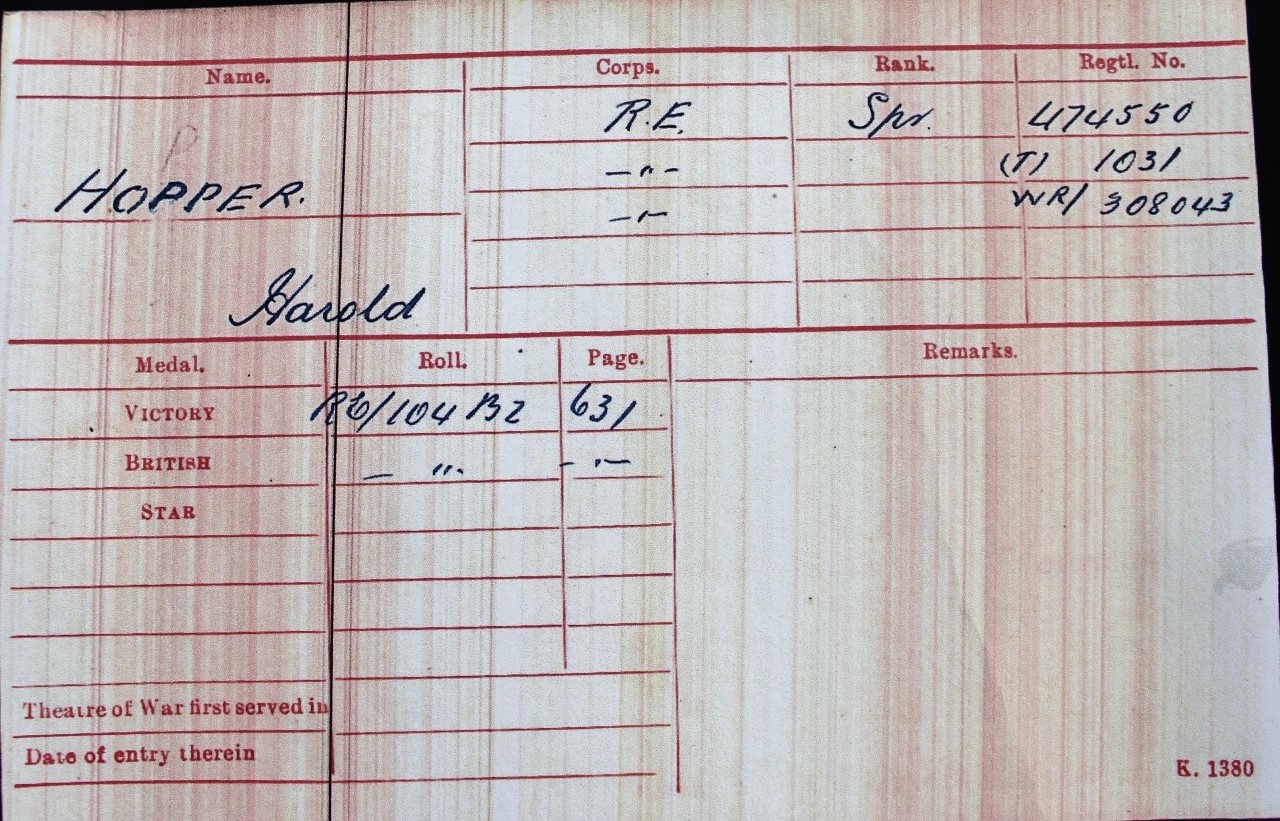 Name. Corps. Rank. Regtl. No.
R.E. Spr. 474550
P
—"— (T) 1031
HOPPER. —"— WR/ 308043
Harold
Medal. Roll. Page. Remarks.
VICTORY RE/104 B2 631
BRITISH — ". —"—
STAR
Theatre of War first served in
Date of entry therein
K. 1380